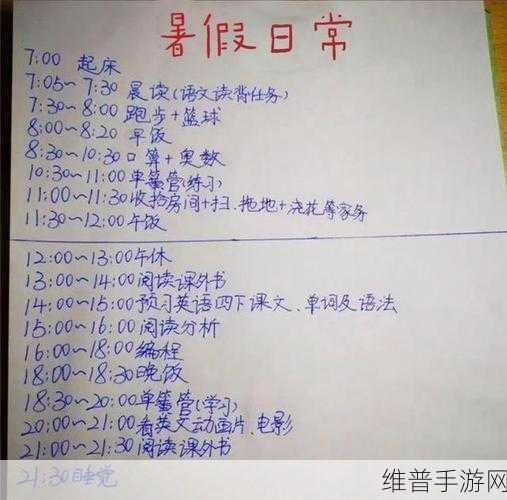 暑假日常
7:00 起床
7:05~7:30 晨读(语文读背任务)
7:30~8:00 跑步+篮球
8:00~8:20 早饭
8:30~10:30 口算+奥数
10:30~11:00 单簧管(练习)
11:00~11:30 收拾房间+扫、拖地+浇花等家务
11:30~12:00 午饭
12:00~13:00 午休
13:00~14:00 阅读课外书
14:00~15:00 预习英语四下课文、单词及语法
15:00~16:00 阅读分析
16:00~18:00 编程
18:00~18:30 晚饭
18:30~20:00 单簧管(学习)
20:00~21:00 看英文动画片、电影
21:00~21:30 阅读课外书
21:30 睡觉
维普手游网